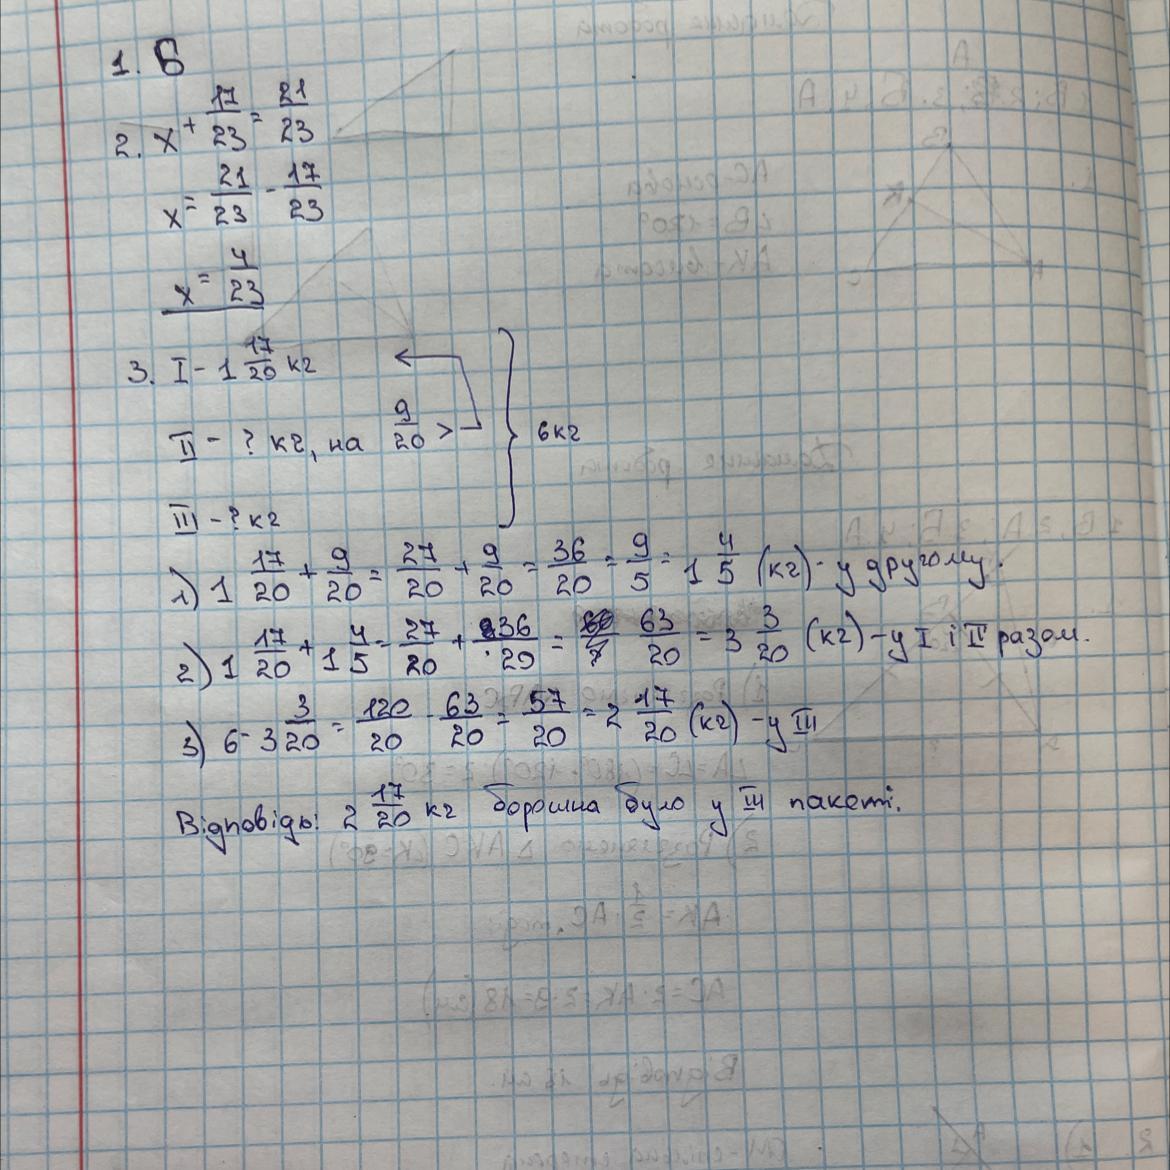 1. Б
2. x + 17/23 = 21/23
x = 21/23 - 17/23
x = 4/23
3. I - 1 17/20 кг
II - ? кг, на 9/20 >
6кг
III - ? кг
1) 1 17/20 + 9/20 = 27/20 + 9/20 = 36/20 = 9/5 = 1 4/5 (кг) - у другому.
2) 1 17/20 + 1 4/5 = 27/20 + 36/20 = 63/20 = 3 3/20 (кг) - у I і II разом.
3) 6 - 3 3/20 = 120/20 - 63/20 = 57/20 = 2 17/20 (кг) - у III
Відповідь: 2 17/20 кг борошна було у III пакеті.